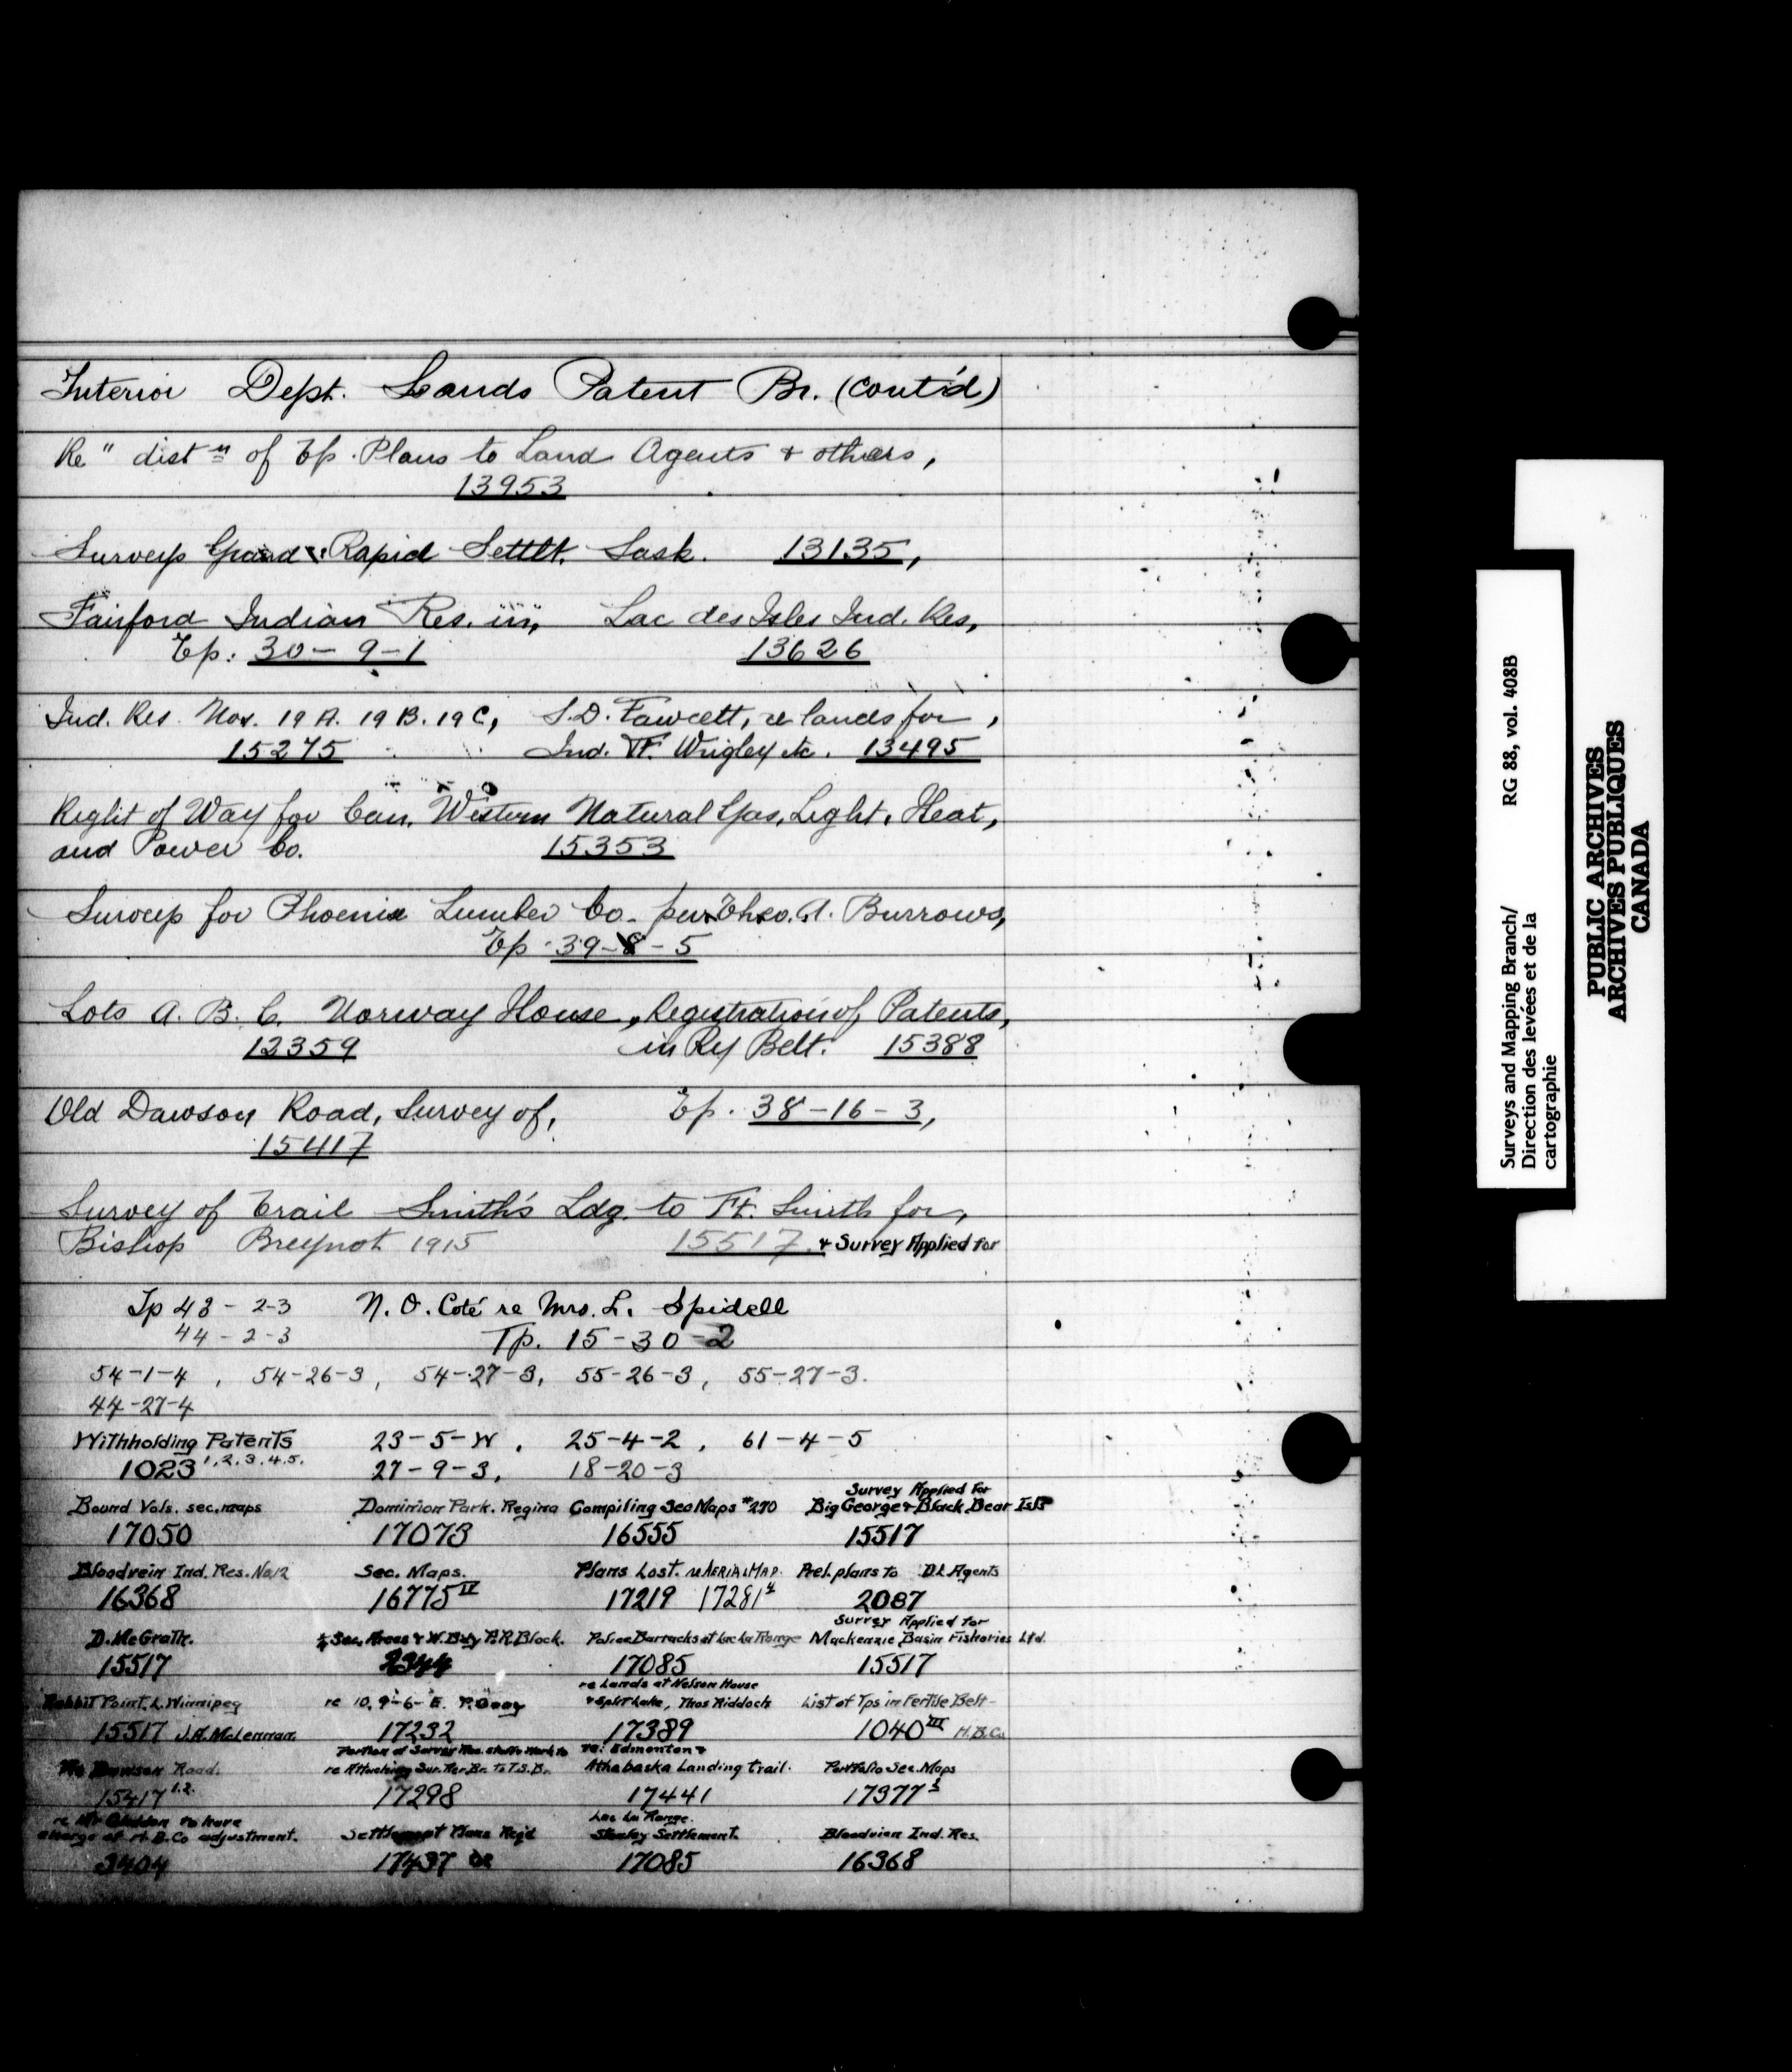 Interior Dept. Lands Patent Br. (Cont'd)
Re" distn of Tp. Plans to Land Agents & others,
13953
Surveys Grand Rapid Settlt. Sask. 13135,
Fairford Indian Res. in, Lac des Isles Ind. Res,
Tp. 30-9-1 13626
Ind. Res. Nos. 19A. 19B. 19C, S.D. Fawcett, re lands for,
15275 Ind. Ft. Wrigley etc. 13495
Right of Way for Can. Western Natural Gas, Light, Heat,
and Power Co. 15353
Surveys for Phoenix Lumber Co. per Theo. A. Burrows,
Tp. 39-8-5
Lots A. B. C. Norway House, Registration of Patents,
12359 in Ry Belt. 15388
Old Dawson Road, Survey of, Tp. 38-16-3,
15417
Survey of Trail Smith's Ldg. to Ft. Smith for,
Bishop Breynot 1915 15517. & Survey Applied for
Tp 43-2-3 N. O. Coté re Mrs. L. Spidell
44-2-3 Tp. 15-30-2
54-1-4, 54-26-3, 54-27-3, 55-26-3, 55-27-3.
44-27-4
Withholding Patents 23-5-W, 25-4-2, 61-4-5
1023 1.2.3.4.5. 27-9-3, 18-20-3
Survey Applied for
Bound Vols. sec. maps Dominion Park. Regina Compiling Sec Maps #270 Big George & Black Bear Isls
17050 17073 16555 15517
Bloodvein Ind. Res. No.12 Sec. Maps. Plans Lost. re AERIAL MAP. Prel. plans to D.L Agents
16368 16775 IV 17219 17281 4 2087
Survey Applied for
D. McGrath. ¼ Sec. Areas & W. Bdy P.R. Block. Police Barracks at Lac La Ronge Mackenzie Basin Fisheries Ltd.
15517 2344 17085 15517
re Lands at Nelson House
Rabbit Point. L. Winnipeg re 10, 9-6-E. & Split Lake, Thos Riddoch List of Tps in Fertile Belt-
15517 J.A. McLennan. 17232 17389 1040 III H.B.Co
Portion of Survey Rec. staff & Work to re: Edmonton &
Re Dawson Road. re Attaching Sur. Rec Br. to T.S.Br. Athabaska Landing Trail. Portfolio Sec. Maps
15417 1.2. 17298 17441 17377 5
re Mr to have Lac La Ronge.
charge of H.B.Co adjustment. Settlement Plans Req'd Stanley Settlement. Bloodvien Ind. Res.
3404 17437 17085 16368
Surveys and Mapping Branch/ RG 88, vol. 408B
Direction des levées et de la
cartographie
PUBLIC ARCHIVES
ARCHIVES PUBLIQUES
CANADA